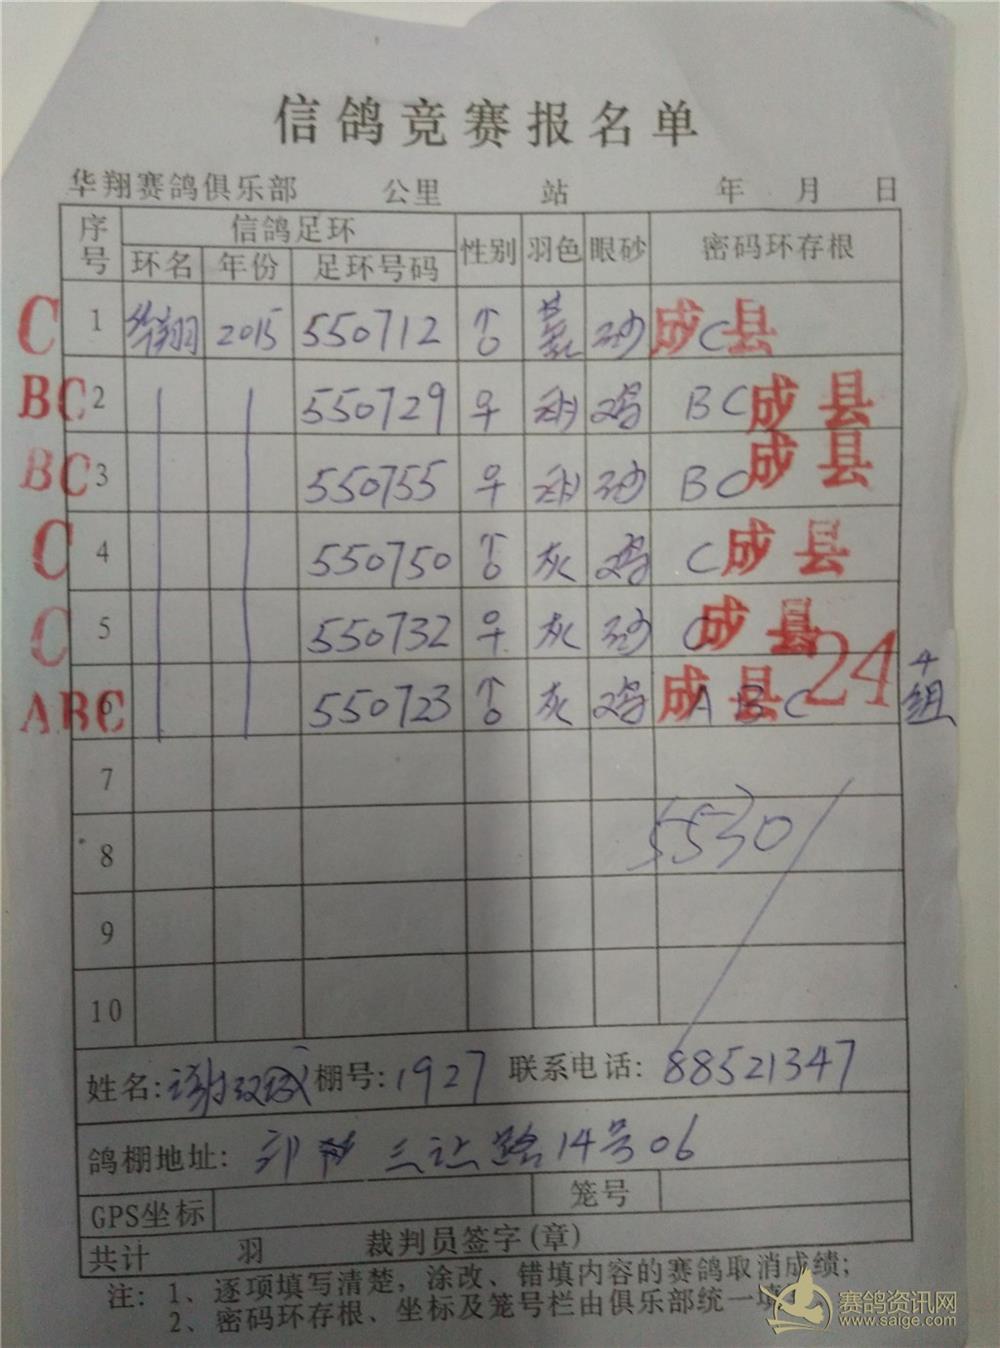 信鸽竞赛报名单
华翔赛鸽俱乐部 公里 站 年 月 日
序号 信鸽足环 性别 羽色 眼砂 密码环存根
环名 年份 足环号码
C 1 华翔 2015 550712 ♂ 砂 C 成县
BC 2 550729 ♀ 鸡 BC 成县
BC 3 550755 ♀ 砂 BC 成县
C 4 550750 ♂ 灰 鸡 C 成县
C 5 550732 ♀ 灰 砂 C 成县
ABC 6 550723 ♂ 灰 鸡 ABC 成县 24 4组
7
8 5530
9
10
姓名:谢 棚号:1927 联系电话:88521347
鸽棚地址: 三 路14号06
GPS坐标 笼号
共计 羽 裁判员签字(章)
注:1、逐项填写清楚,涂改、错填内容的赛鸽取消成绩;
2、密码环存根、坐标及笼号栏由俱乐部统一填
赛鸽资讯网
www.saige.com